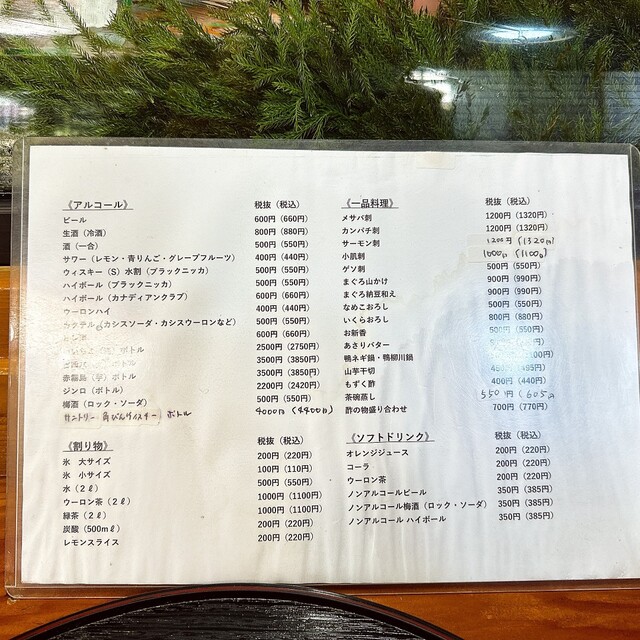 《アルコール》 税抜（税込）
ビール 600円（660円）
生酒（冷酒） 800円（880円）
酒（一合） 500円（550円）
サワー（レモン・青りんご・グレープフルーツ） 400円（440円）
ウィスキー（S）水割（ブラックニッカ） 500円（550円）
ハイボール（ブラックニッカ） 500円（550円）
ハイボール（カナディアンクラブ） 600円（660円）
ウーロンハイ 400円（440円）
カクテル（カシスソーダ・カシスウーロンなど） 500円（550円）
600円（660円）
ボトル 2500円（2750円）
ボトル 3500円（3850円）
赤霧島（芋）ボトル 3500円（3850円）
ジンロ（ボトル） 2200円（2420円）
梅酒（ロック・ソーダ） 500円（550円）
サントリー 角びんウイスキー ボトル 4000円（4400円）
《割り物》 税抜（税込）
氷 大サイズ 200円（220円）
氷 小サイズ 100円（110円）
水（2ℓ） 500円（550円）
ウーロン茶（2ℓ） 1000円（1100円）
緑茶（2ℓ） 1000円（1100円）
炭酸（500mℓ） 200円（220円）
レモンスライス 200円（220円）
《一品料理》 税抜（税込）
メサバ刺 1200円（1320円）
カンパチ刺 1200円（1320円）
サーモン刺 1200円（1320円）
小肌刺 1000円（1100円）
ゲソ刺 500円（550円）
まぐろ山かけ 900円（990円）
まぐろ納豆和え 900円（990円）
なめこおろし 500円（550円）
いくらおろし 800円（880円）
お新香
あさりバター
鴨ネギ鍋・鴨柳川鍋
山芋千切
もずく酢 400円（440円）
茶碗蒸し 550円（605円）
酢の物盛り合わせ 700円（770円）
《ソフトドリンク》 税抜（税込）
オレンジジュース 200円（220円）
コーラ 200円（220円）
ウーロン茶 200円（220円）
ノンアルコールビール 350円（385円）
ノンアルコール梅酒（ロック・ソーダ） 350円（385円）
ノンアルコール ハイボール 350円（385円）